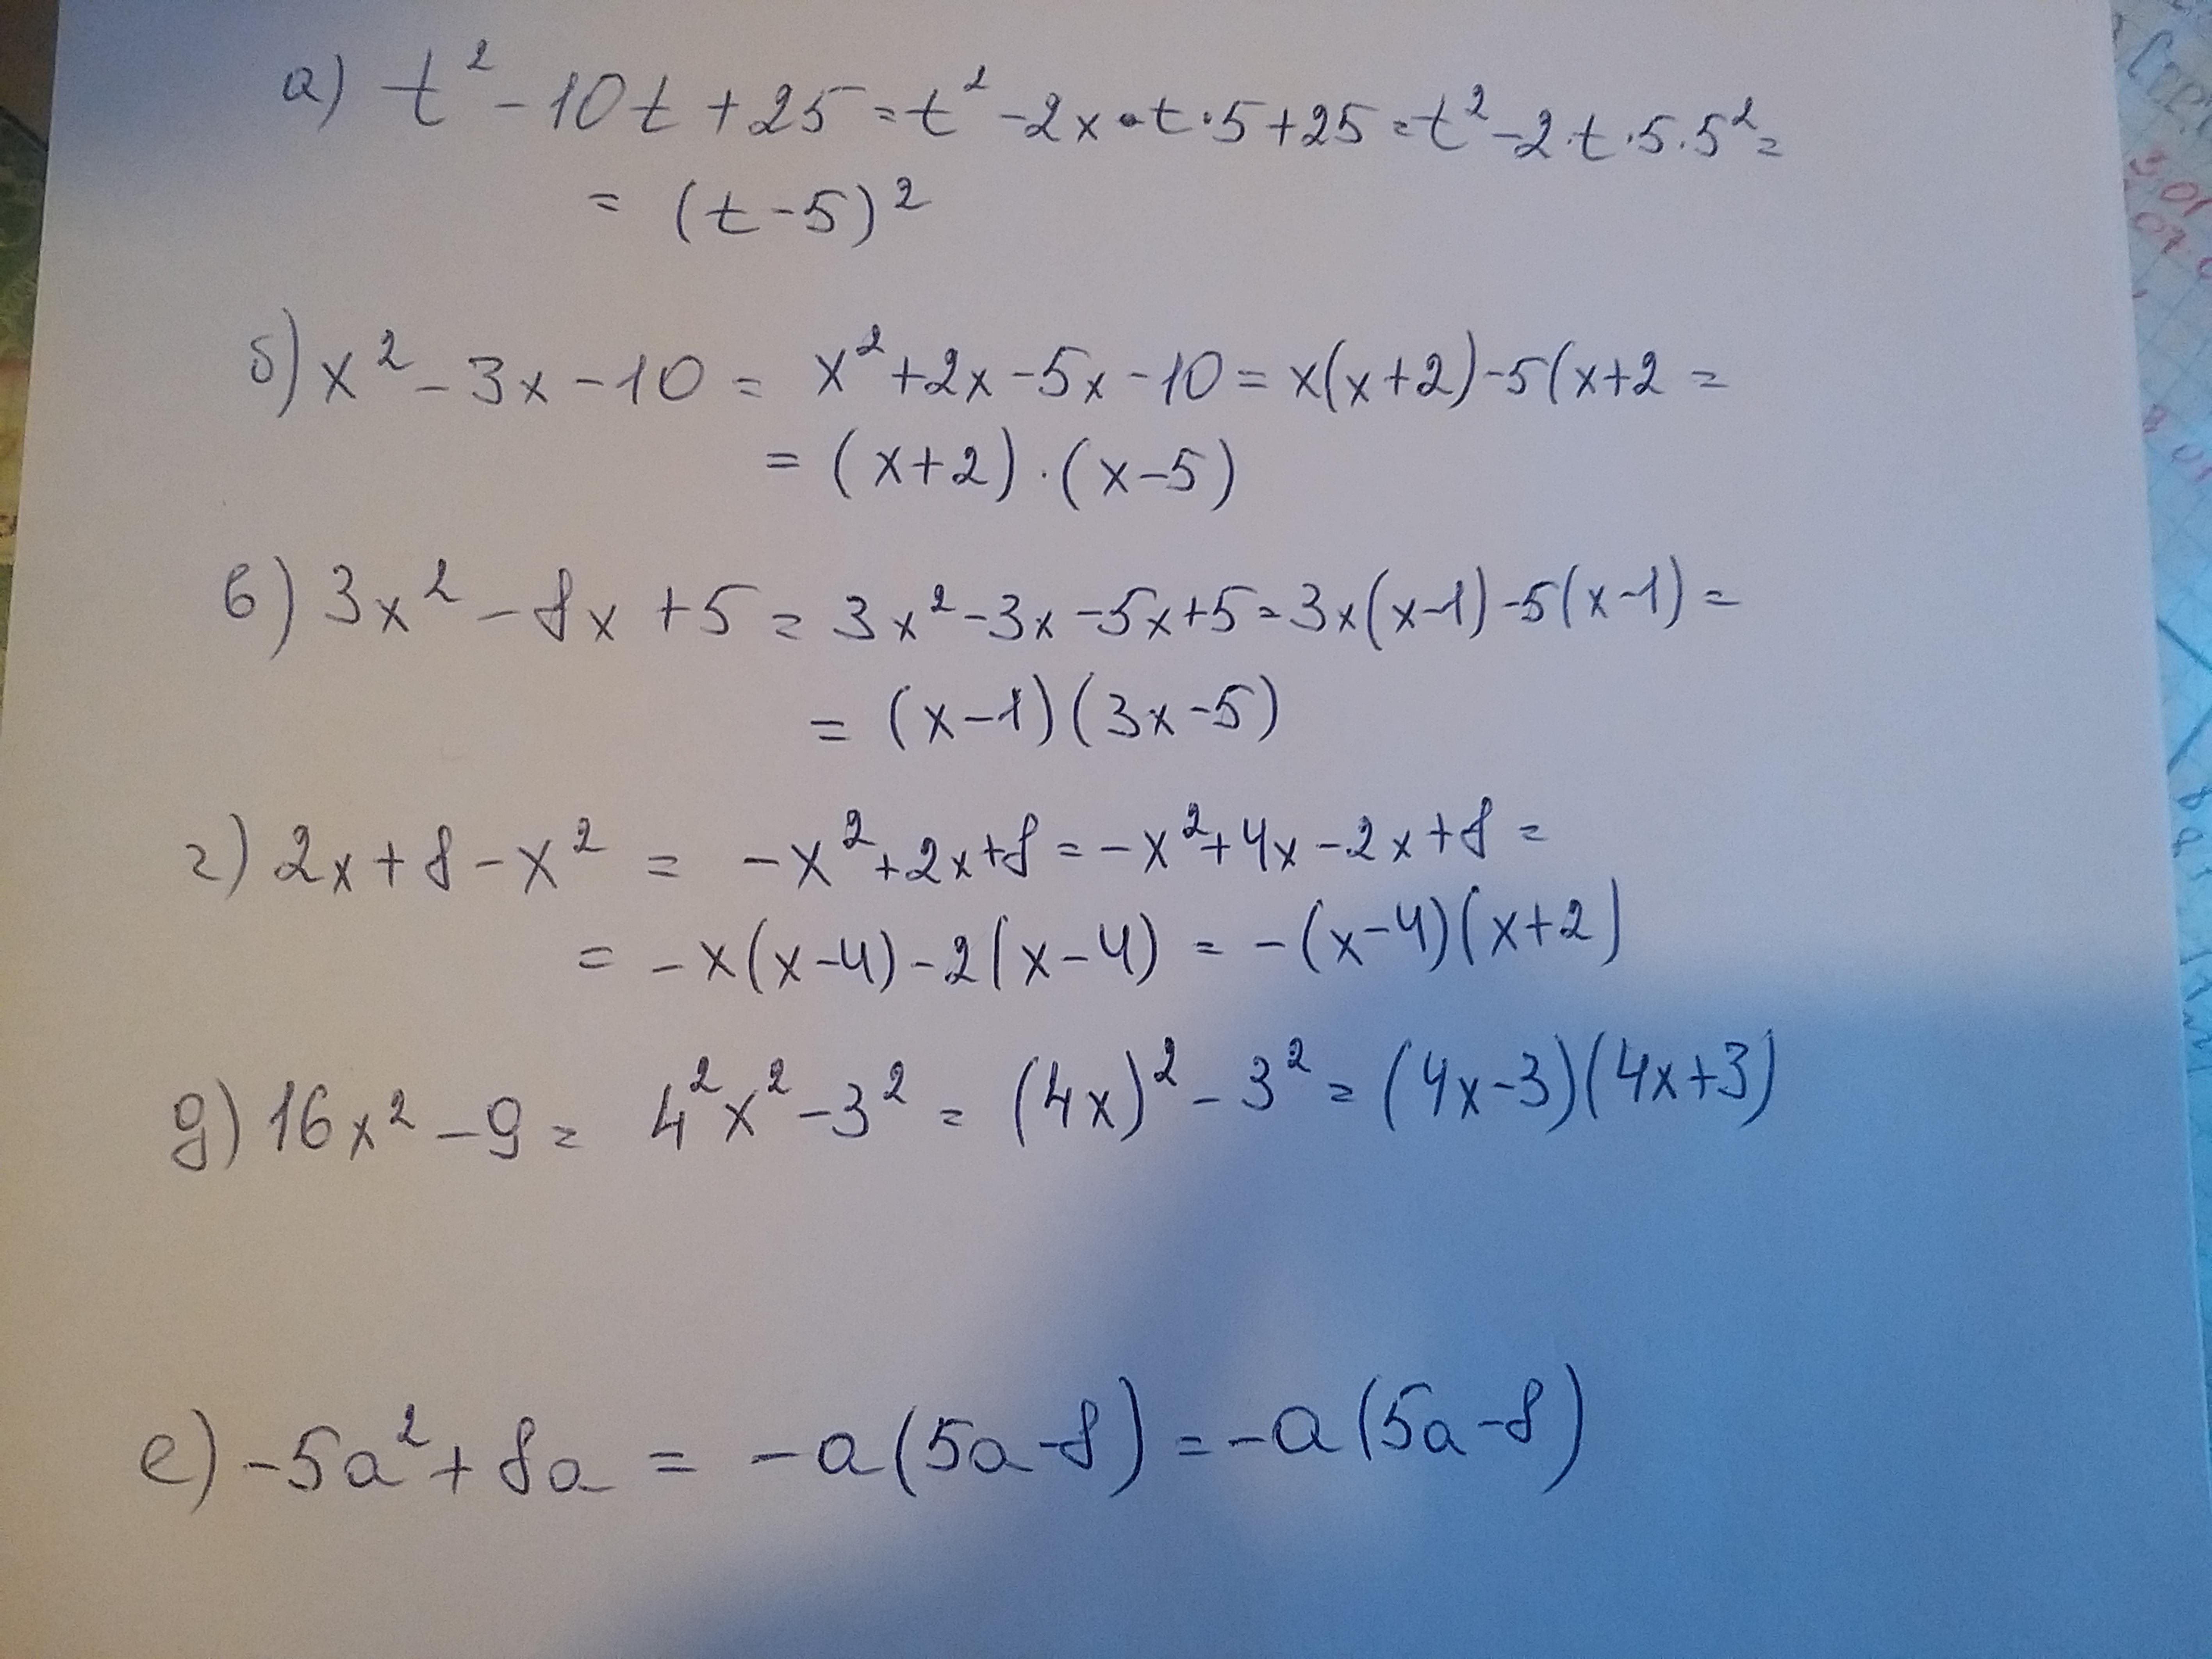 а) t² - 10t + 25 = t² - 2x · t · 5 + 25 = t² - 2 · t · 5 · 5² =
= (t - 5)²
б) x² - 3x - 10 = x² + 2x - 5x - 10 = x(x+2) - 5(x+2 =
= (x+2) · (x-5)
в) 3x² - 8x + 5 = 3x² - 3x - 5x + 5 = 3x(x-1) - 5(x-1) =
= (x-1)(3x-5)
г) 2x + 8 - x² = -x² + 2x + 8 = -x² + 4x - 2x + 8 =
= -x(x-4) - 2(x-4) = -(x-4)(x+2)
д) 16x² - 9 = 4²x² - 3² = (4x)² - 3² = (4x-3)(4x+3)
е) -5a² + 8a = -a(5a-8) = -a(5a-8)